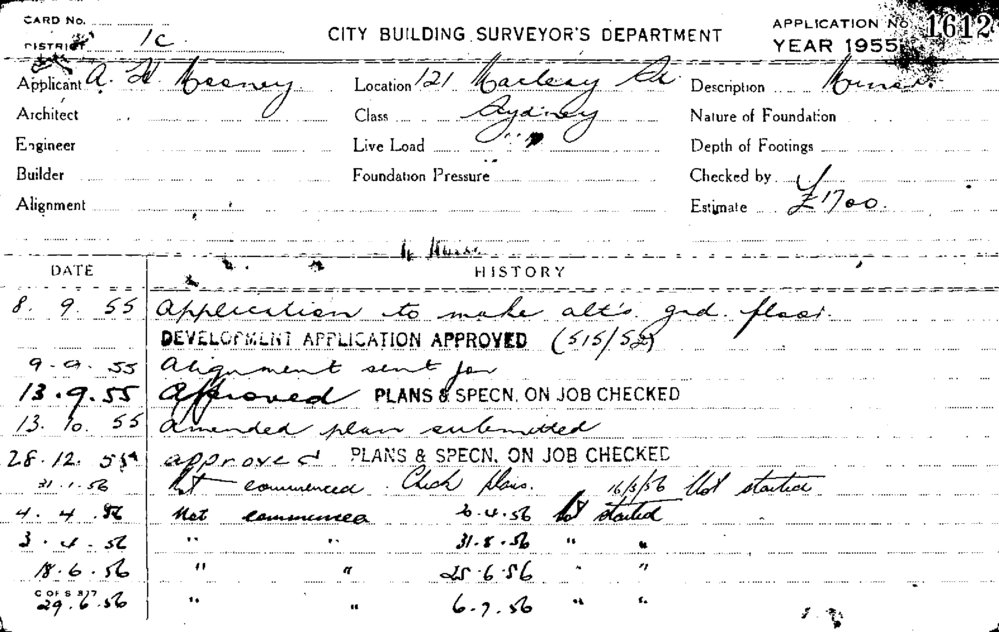 CARD No.
DISTRICT 1C
CITY BUILDING SURVEYOR'S DEPARTMENT
APPLICATION No. 1612
YEAR 1955
Applicant A. H. Mooney Location 121 Macleay St Description
Architect Class Sydney Nature of Foundation
Engineer Live Load Depth of Footings
Builder Foundation Pressure Checked by
Alignment Estimate £1700.
DATE HISTORY
8. 9. 55 Application to make alt's. grd. floor.
DEVELOPMENT APPLICATION APPROVED (515/52)
9-9.55 Alignment sent for
13.9.55 Approved PLANS & SPECN. ON JOB CHECKED
13.10.55 Amended plan submitted
28.12.55 approved PLANS & SPECN. ON JOB CHECKED
31.1.56 Not commenced. Check plans. 16/3/56 Not started
4.4.56 Not commenced 6.4.56 Not started
3.4.56 " " 31.5.56 " "
18.6.56 " " 25.6.56 " "
C OF S 817
29.6.56 " " 6.7.56 " "